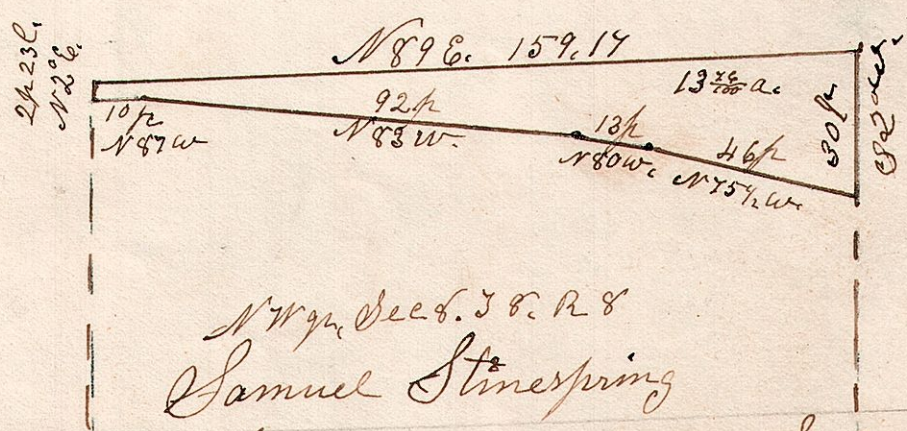 2p 23l.
N2°E.
N 89 E. 159,17
13 76/100 a.
30p
S2 W.
10p
N 87 W
92p
N 83 W.
13p
N 80 W.
46p
N 75 1/2 W.
N W qr, Sec 8. T 8. R 8
Samuel Stinespring